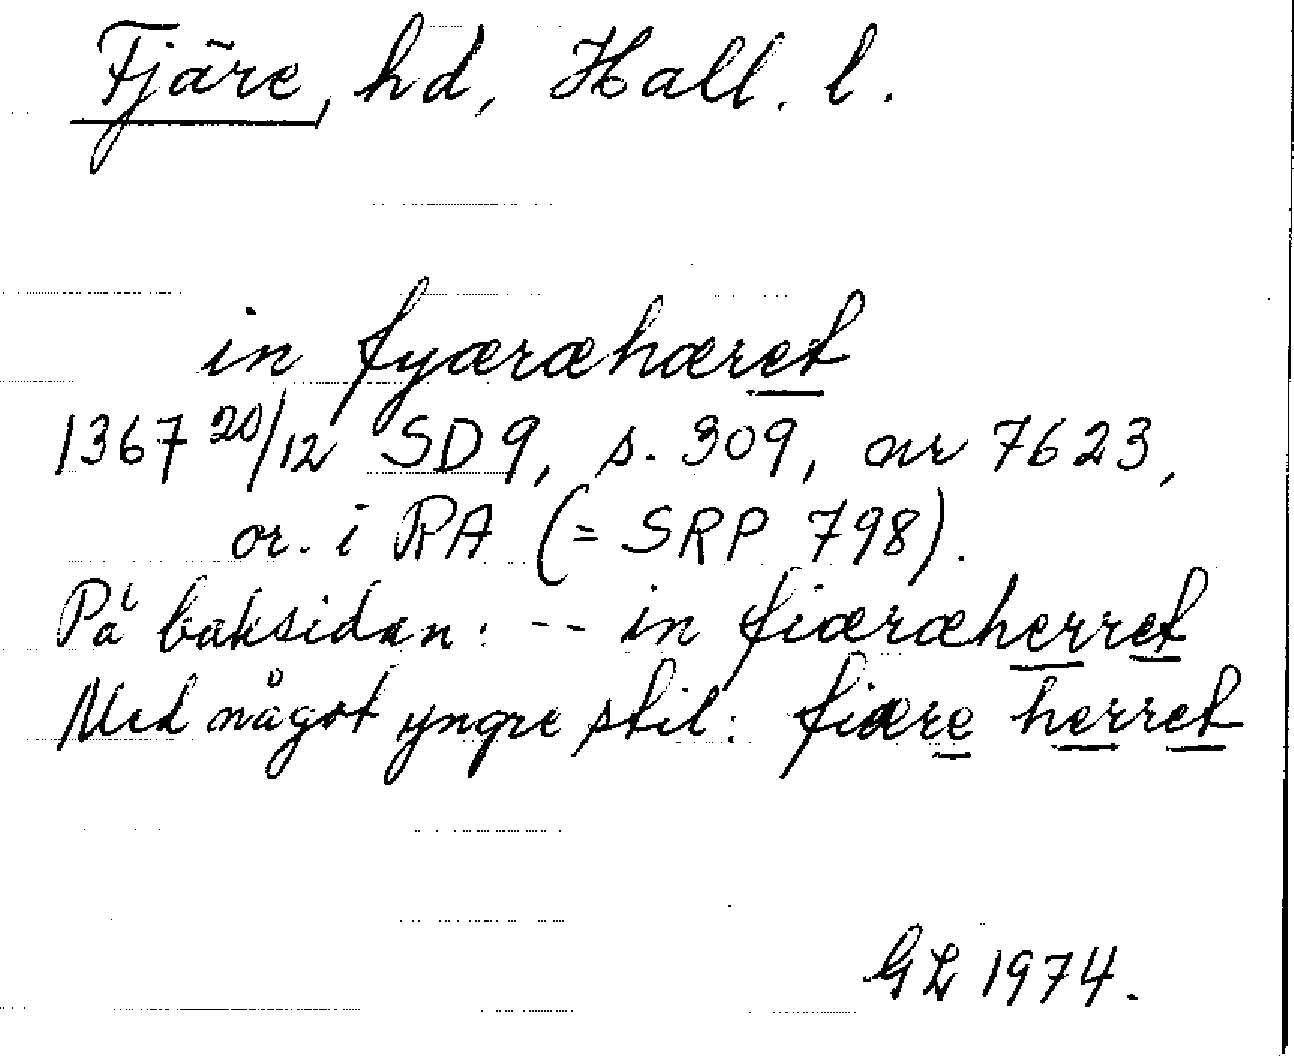 Fjäre, hd, Hall. l.
in fyæræhæret
1367 20/12 SD 9, s. 309, nr 7623,
or. i RA (= SRP 798).
På baksidan: -- in fiæræherret
Med något yngre stil: fiære herret
GL 1974.